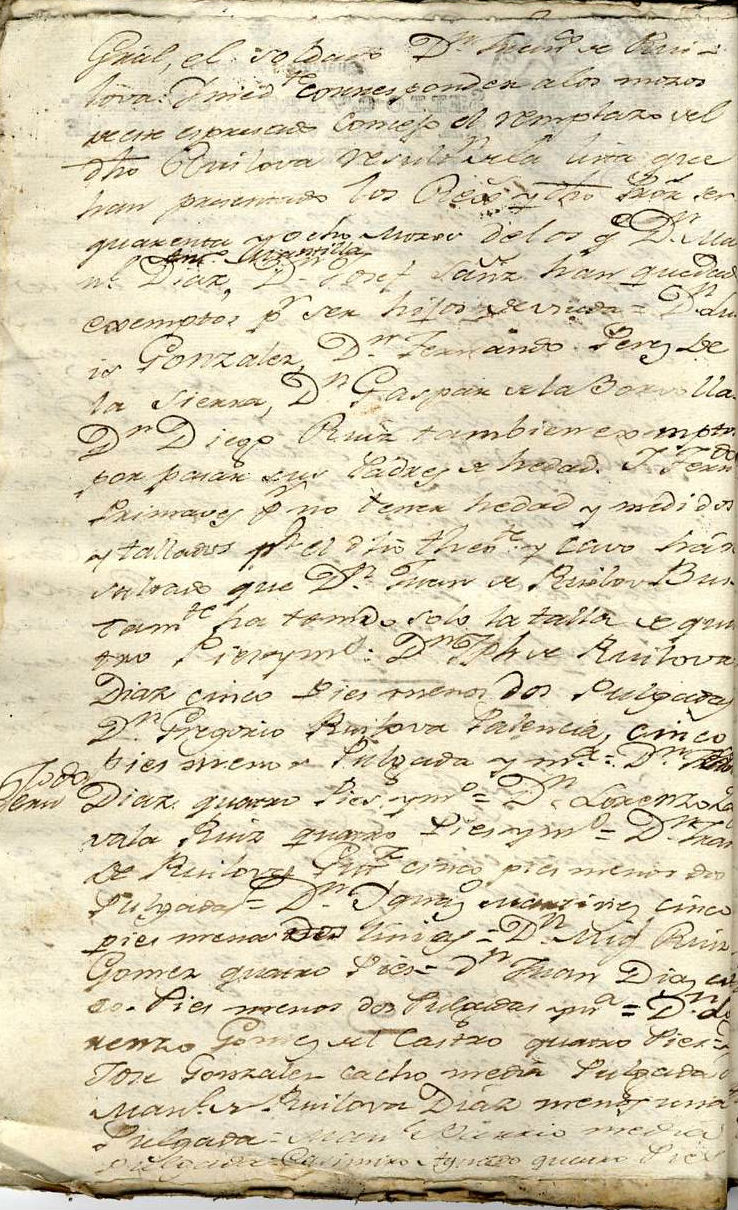 Gral, el soldado Dn Franco de Rui-
lova. Ymedte corresponder a los mozos
de este expresado Concejo el remplazo del
dho Ruilova resulto de la lista que
han presentado los Rexs y dho Prôr ser
quarenta y ocho Mozos de los qe Dn Ma
nl Diaz, Dn Josef Sanz han quedado
exemptos pr ser hijos de viuda = Dn Lu
is Gonzalez, Dn Fernando Perez de
la Sierra, Dn Gaspar de la Borbolla
Dn Diego Ruiz tambien exempto
por pasar sus Padres de hedad. Y Ferndo
pr no tener hedad y medidos
y tallados pr el dho y Cavo han
que Dn Juan de Ruilova Bus
tamte ha tenido solo la talla de qua
tro Pies y mo: Dn Jph de Ruilova
Diaz cinco Pies menos dos Pulgadas
Dn Gregorio Ruilova Palencia, cinco
pies menos Pulgada y ma: Dn
Todo
Diaz quatro Pies y mo = Dn Lorenzo Za
vala Ruiz quatro Pies y mo = Dn Fran
de Ruilova cinco pies menos dos
Pulgadas = Dn Ygnao Martinez cinco
pies menos = Dn Migl Ruiz
Gomez quatro Pies = dn Juan Diaz cin
co Pies menos dos Pulgadas y ma = Dn Lo
renzo Gomez del Castro quatro Pies =
Jose Gonzalez Cacho media Pulgada
Manl de Ruilova Diaz menos una
Pulgada = Juan media
Pulgada = Casimiro quatro Pies